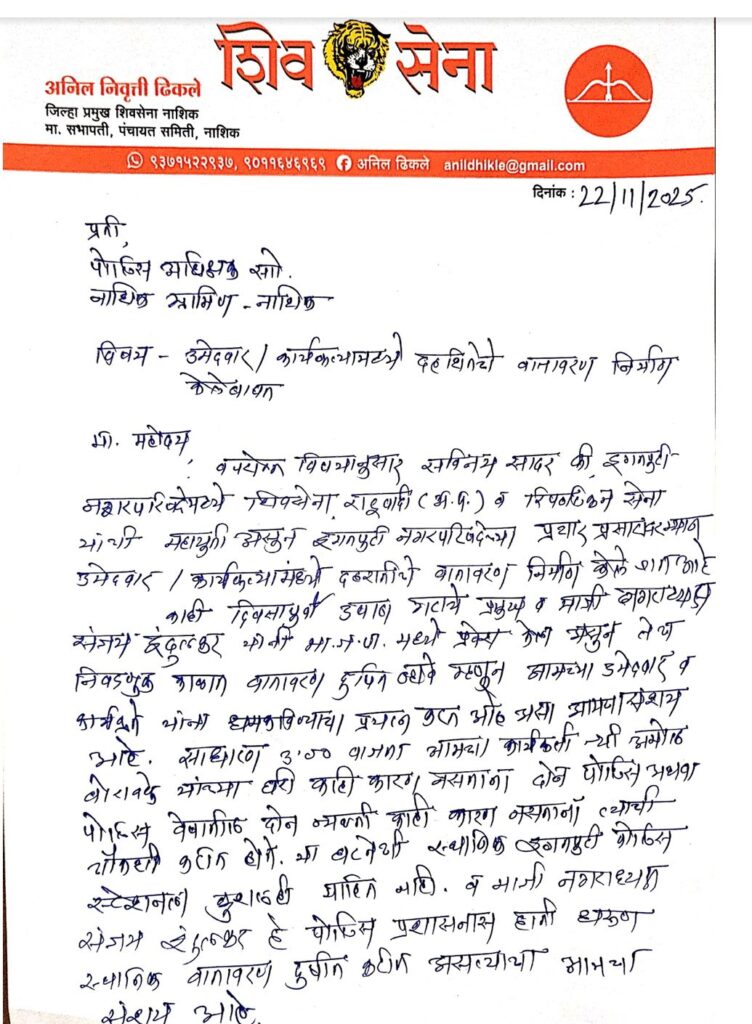 शिव सेना
अनिल निवृत्ती ढिकले
जिल्हा प्रमुख शिवसेना नाशिक
मा. सभापती, पंचायत समिती, नाशिक
९३७१५२२९३७, ९०११६४६९६९ अनिल ढिकले anildhikle@gmail.com
दिनांक : 22/11/2025.
प्रती,
पोलिस अधिक्षक सो.
नाशिक ग्रामिण - नाशिक
विषय - उमेदवार / कार्यकर्त्यामध्ये दहशतिचे वातावरण निर्माण
केलेबाबत
मा. महोदय,
वपरोक्त विषयानुसार सविनय सादर की, इगतपुरी
नगरपरिषदेमध्ये शिवसेना, राष्ट्रवादी (अ.प.) व रिपब्लिकन सेना
यांची महायुती असुन इगतपुरी नगरपरिषदेच्या प्रचार प्रसारादरम्यान
उमेदवार / कार्यकर्त्यामध्ये दहशतीचे वातावरण निर्माण केले जात आहे
काही दिवसापुर्वी उबाठा गटाचे प्रमुख व माजी नगराध्यक्ष
संजय इंदुलकर यांनी भा.ज.पा. मध्ये प्रवेश केला असुन तेथे
निवडणुक काळात वातावरण दुषित व्हावे म्हणुन आमच्या उमेदवार व
कार्यकर्ते यांना धमकाविण्याचा प्रयत्न करत आहे असा आमचा संशय
आहे. साधारण 3:00 वाजता आमचा कार्यकर्ता श्री
यांच्या घरी काही कारण नसताना दोन पोलिस अथवा
पोलिस वेशातील दोन व्यक्ती काही कारण नसताना त्याची
चौकशी करीत होते. या घटनेची स्थानिक इगतपुरी पोलिस
स्टेशनला कुठलही माहित नाही. व माजी नगराध्यक्ष
संजय इंदुलकर हे पोलिस प्रशासनास हाती धरुन
स्थानिक वातावरण दुषीत करीत असल्याचा आमचा
संशय आहे.